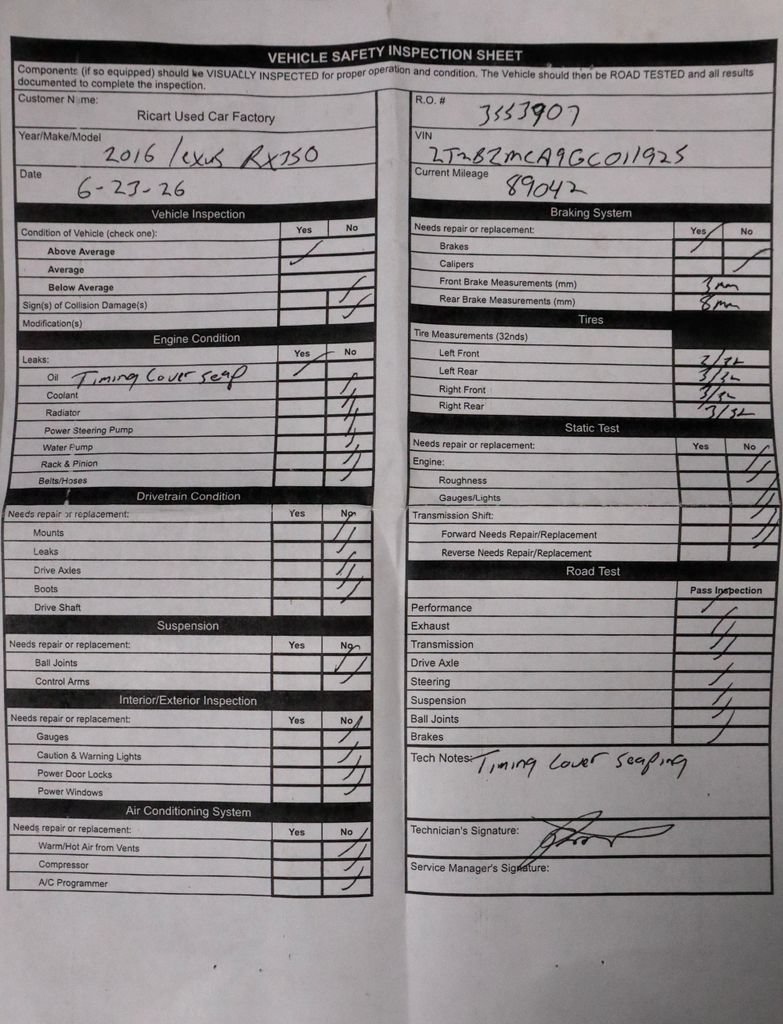 VEHICLE SAFETY INSPECTION SHEET
Components (if so equipped) should be VISUALLY INSPECTED for proper operation and condition. The Vehicle should then be ROAD TESTED and all results
documented to complete the inspection.
Customer Name:
Ricart Used Car Factory
Year/Make/Model
2016 lexus RX350
Date
6-23-26
Vehicle Inspection
Condition of Vehicle (check one): Yes No
Above Average
Average
Below Average
Sign(s) of Collision Damage(s)
Modification(s)
Engine Condition
Leaks: Yes No
Oil Timing Cover seap
Coolant
Radiator
Power Steering Pump
Water Pump
Rack & Pinion
Belts/Hoses
Drivetrain Condition
Needs repair or replacement: Yes No
Mounts
Leaks
Drive Axles
Boots
Drive Shaft
Suspension
Needs repair or replacement: Yes No
Ball Joints
Control Arms
Interior/Exterior Inspection
Needs repair or replacement: Yes No
Gauges
Caution & Warning Lights
Power Door Locks
Power Windows
Air Conditioning System
Needs repair or replacement: Yes No
Warm/Hot Air from Vents
Compressor
A/C Programmer
R.O. #
3553907
VIN
2T2BZMCA9GC011925
Current Mileage
89042
Braking System
Needs repair or replacement: Yes No
Brakes
Calipers
Front Brake Measurements (mm) 3mm
Rear Brake Measurements (mm) 8mm
Tires
Tire Measurements (32nds)
Left Front 2/32
Left Rear 3/32
Right Front 3/32
Right Rear 3/32
Static Test
Needs repair or replacement: Yes No
Engine:
Roughness
Gauges/Lights
Transmission Shift:
Forward Needs Repair/Replacement
Reverse Needs Repair/Replacement
Road Test
Pass Inspection
Performance
Exhaust
Transmission
Drive Axle
Steering
Suspension
Ball Joints
Brakes
Tech Notes: Timing Cover seaping
Technician's Signature:
Service Manager's Signature: